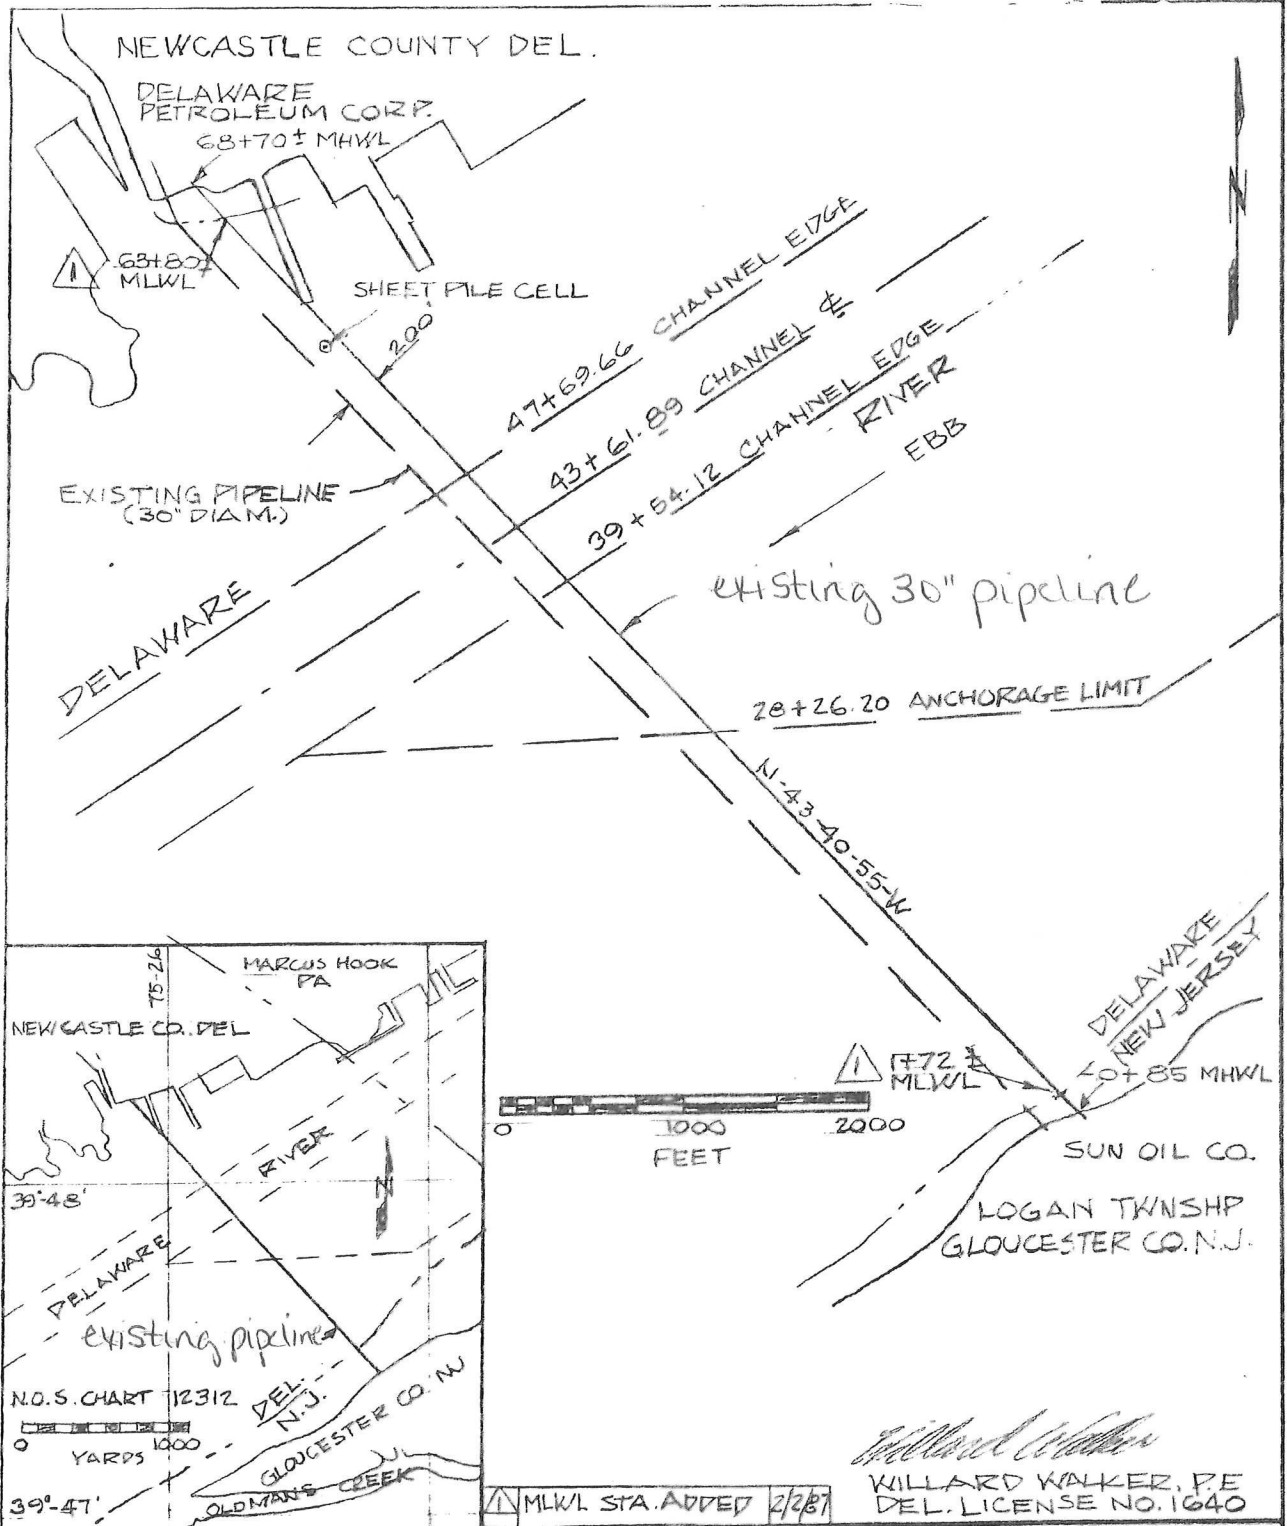 NEWCASTLE COUNTY DEL.
DELAWARE
PETROLEUM CORP.
68+70± MHWL
1
63+80±
MLWL
SHEET PILE CELL
200'
47+69.66 CHANNEL EDGE
43+61.89 CHANNEL ℄
39+54.12 CHANNEL EDGE
DELAWARE
RIVER
EBB
N
EXISTING PIPELINE
(30" DIAM.)
existing 30" pipeline
28+26.20 ANCHORAGE LIMIT
N-43-40-55-W
DELAWARE
NEW JERSEY
1
1+72±
MLWL
0+85 MHWL
0 1000 2000
FEET
SUN OIL CO.
LOGAN TWNSHP
GLOUCESTER CO. N.J.
75-26
MARCUS HOOK
PA
NEW CASTLE CO. DEL
RIVER
N
39°-48'
DELAWARE
existing pipeline
N.O.S. CHART 12312
DEL.
N.J.
0 1000
YARDS
GLOUCESTER CO. NJ
OLDMANS CREEK
39°-47'
1 MLWL STA. ADDED 2/2/87
Willard Walker
WILLARD WALKER, P.E
DEL. LICENSE NO. 1640